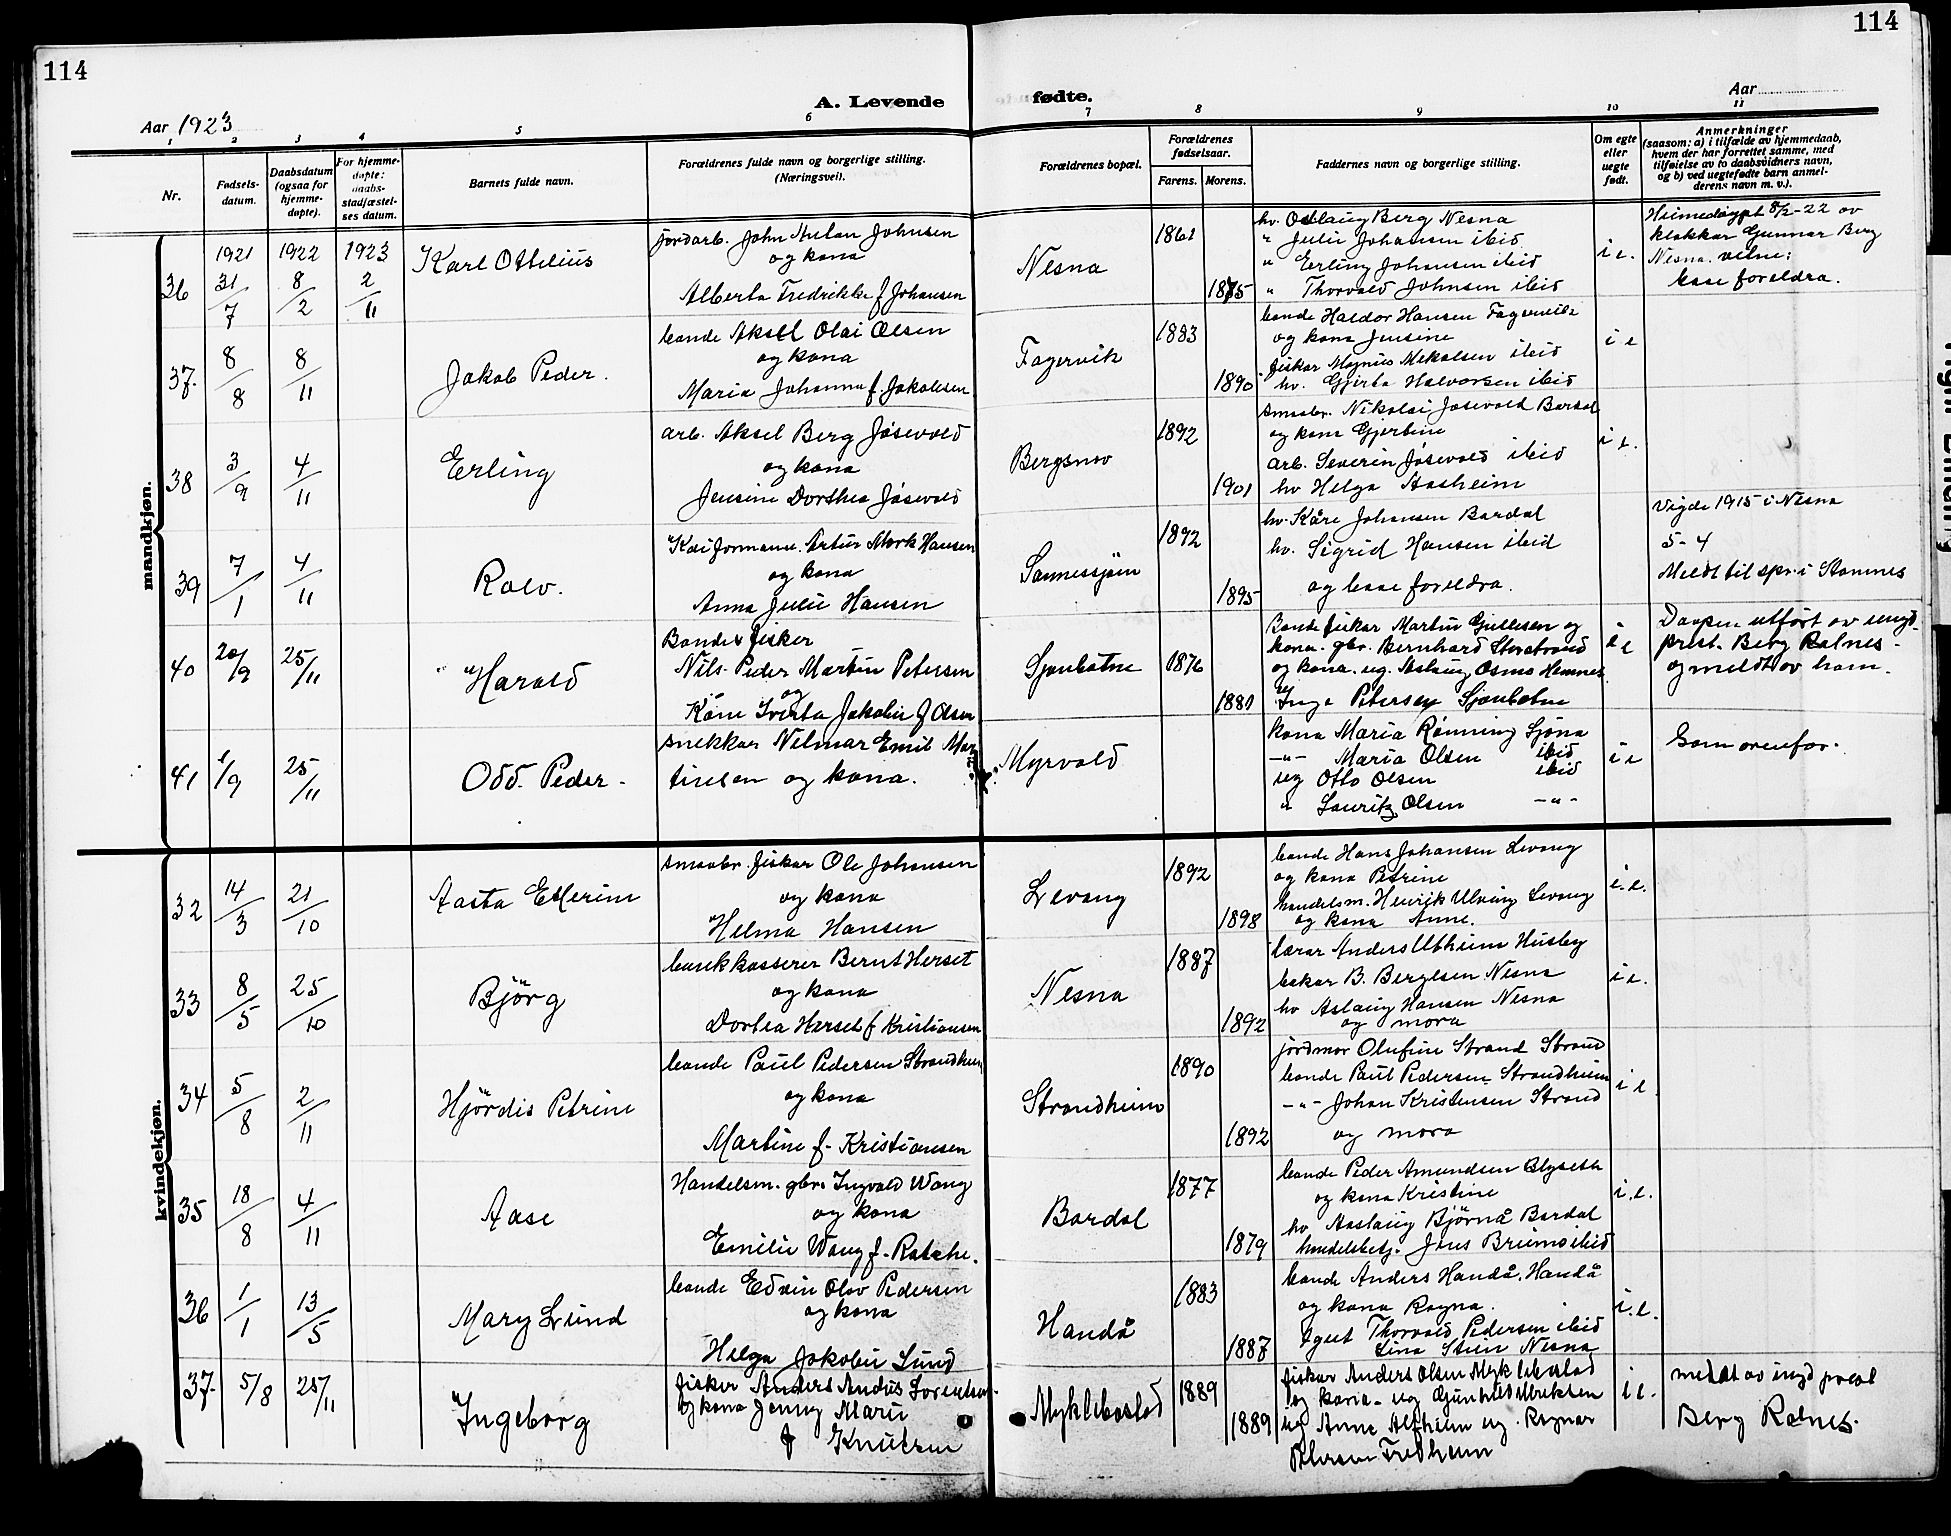 114
114
A. Levende
fødte.
Aar 1923
Aar
1
2
3
4
5
6
7
8
9
10
11
Nr.
Fødsels-
datum.
Daabsdatum
(ogsaa for
hjemme-
døpte).
For hjemme-
døpte:
daabs-
stadfæstel-
ses datum.
Barnets fulde navn.
Forældrenes fulde navn og borgerlige stilling.
(Næringsvei).
Forældrenes bopæl.
Forældrenes
fødselsaar.
Farens.
Morens.
Faddernes navn og borgerlige stilling.
Om egte
eller
uegte
født.
Anmerkninger
(saasom: a) i tilfælde av hjemmedaab,
hvem der har forrettet samme, med
tilføielse av to daabsvidners navn,
og b) ved uegtefødte barn anmel-
derens navn m. v.).
mandkjøn.
36
1921
31/7
1922
8/2
1923
2/11
Karl Ottelius
jordarb. John Anton Johnsen
og kona
Alberta Fredrikke f Johansen
Nesna
1861
1875
hv. Oddlaug Berg Nesna
" Julie Johansen ibid
" Erling Johansen ibid
" Thorvald Johnsen ibid
i e.
Heimedøypt 8/2-22 av
klokkar Gunnar Berg
Nesna. vitne:
base foreldra.
37.
8/8
8/11
Jakob Peder.
bonde Aksel Olai Olsen
og kona
Maria Johanna f Jakobsen
Fagervik
1883
1890
bonde Haldor Hansen Fagervik
og kona Jensine
fiskar Magnus Mikalsen ibid
hv. Gjerta Halvorsen ibid
i e
38
3/9
4/11
Erling
arb. Aksel Berg Jøsevold
og kona
Jensine Dorthea Jøsevold
Bergsmo
1892
1901
smaabr. Nikolai Jøsevold Bardal
og kona Gjertine
arb. Severin Jøsevold ibid
hv Helga Aasheim
i e.
39
7/1
4/11
Rolv.
Kaiformann. Artur Mork Hansen
og kona
Anna Julie Hansen
Sannessjøen
1892
1895
hv. Kåre Johansen Bardal
hv. Sigrid Hansen ibid
og base foreldra.
Vigde 1915 i Nesna
5-4
Meldt til spr. i Stamnes
40
20/9
25/11
Harald
Bonde & fisker
Nils Peder Martin Petersen
og
Kone Iverta Jakobie f Olsen
Sjonbotne
1876
1880
Bonde fiskar Martin Gullesen og
kona. gbr. Bernhard Storstrand
og kona. ug. Aslaug Osmo Hemnes
Inga Petersen Sjonbotne
i e
Daapen utført av ungd.
prest. Berg Ratnes -
og meldt av ham.
41
1/9
25/11
Odd. Peder -
snekkar Nilmar Emil Mar
tinsen og kona.
Myrvold
kona Maria Rønning Sjona
-"- Maria Olsen ibid
ug Otto Olsen ibid
" Lauritz Olsen -"-
i e
Som ovenfor.
kvindekjøn.
32
14/3
21/10
Aasta Etterine
smaabr. fiskar Ole Johansen
og kona
Helma Hansen
Levang
1892
1898
bonde Hans Johansen Levang
og kona Petrine
handelsm. Henrik Ulving Levang
og kona Anne.
i. e.
33
8/5
25/10
Björg
bankkasserer Bernt Herset
og kona
Dortea Herset f Kristiansen
Nesna
1887
1892
lærar Anders Utheim Husby
bakar B. Bergesen Nesna
hv Aslaug Hansen Nesna
og mora
i e.
34
5/8
2/11
Hjördis Petrine
bonde Paul Pedersen Strandheim
og kona
Martine f. Kristiansen
Strandheim
1890
1892
jordmor Olufine Strand Strand
bonde Paul Pedersen Strandheim
-"- Johan Kristensen Strand
og mora
i e.
35
18/8
4/11
Aase
Handelsm. gbr. Ingvald Wang
og kona
Emilie Wang f. Ratche.
Bardal
1877
1879
bonde Peder Amundsen Blyseth
og kona Kristine
hv Aaslaug Björnå Bardal
handelsbetj. Jens Breimo ibid
i. e.
36
1/1
13/5
Mary Lund
bonde Edvin Olav Pedersen
og kona
Helga Jakobie Lund
Handå
1883
1887
bonde Anders Handå, Handå
og kona Ragna.
Agent Thorvald Pedersen ibid
Lina Stien Nesna
i. e.
37.
5/8
25/11
Ingeborg
fisker Anders Andus Lorentsen
og kona Jenny Marie
f Knutsen
Myklebostad
1889
1889
fiskar Anders Olsen Myklebostad
og kona - ug Gunhild Ulriksen
ug Anna Altheim ug. Ragnar
Petersen Fredheim
i e.
meldt av ungd prest
Berg Ratnes.